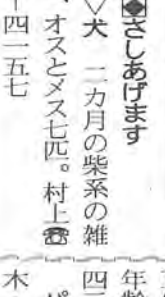 ◆さしあげます
▽犬　二カ月の柴系の雑
、オスとメス七匹。村上☎
ー四一五七
年齢
四三
パ
木